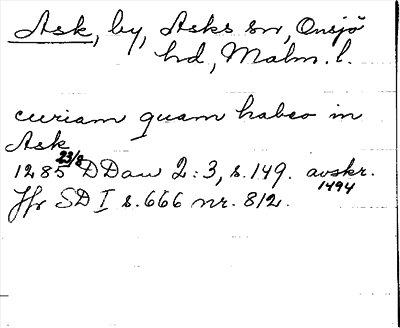 Ask, by, Asks sn, Onsjö
hd, Malm. l.
curiam quam habeo in
Ask
1285 23/8 DDan 2:3, s. 149. avskr. 1494
Jfr SD I s. 666 nr. 812.